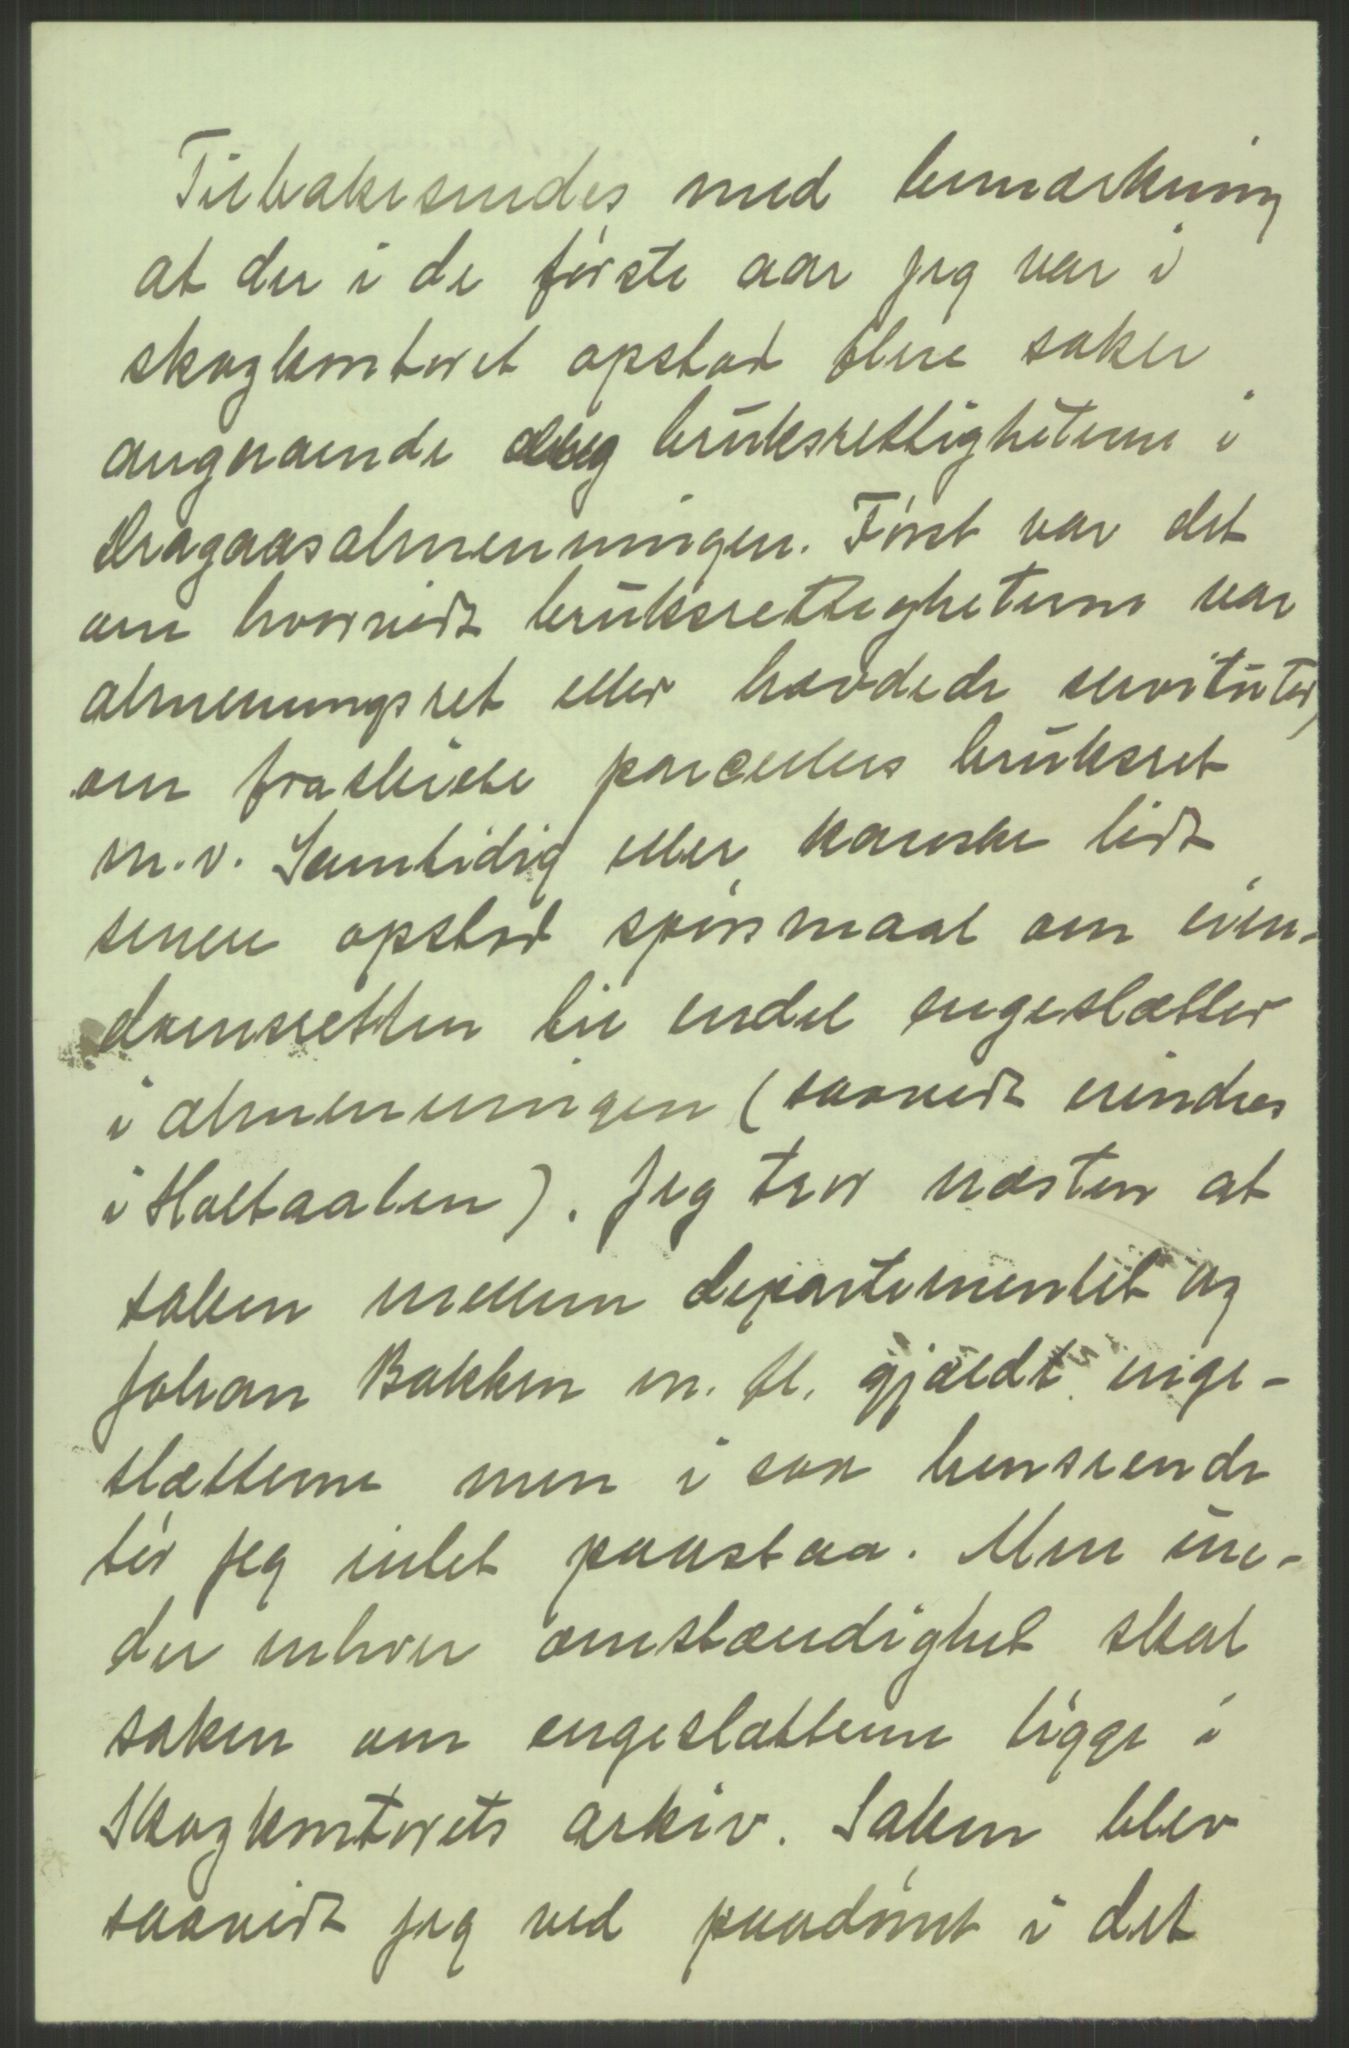 Tilbakesendes med bemærkning
at der i de første aar jeg var i
skogkontoret opstod flere saker
angaaende bruksrettigheterne i
Dragaasalmenningen. Først var det
om hvorvidt bruksrettigheterne var
almenningsret eller hævdede servituter,
om fraskilte parcellers bruksret
m.v. Samtidig eller kanske lidt
senere opstod spørsmaal om eien-
domsretten til endel engeslætter
i almenningen (saavidt erindres
i Holtaalen). Jeg tror næsten at
saken mellem departementet og
Johan Bakken m. fl. gjældt enge-
slætterne men i saa henseende
tør jeg intet paastaa. Men un-
der enhver omstændighet skal
saken om engeslætterne ligge i
Skogkontorets arkiv. Saken blev
saavidt jeg ved paadømt i det